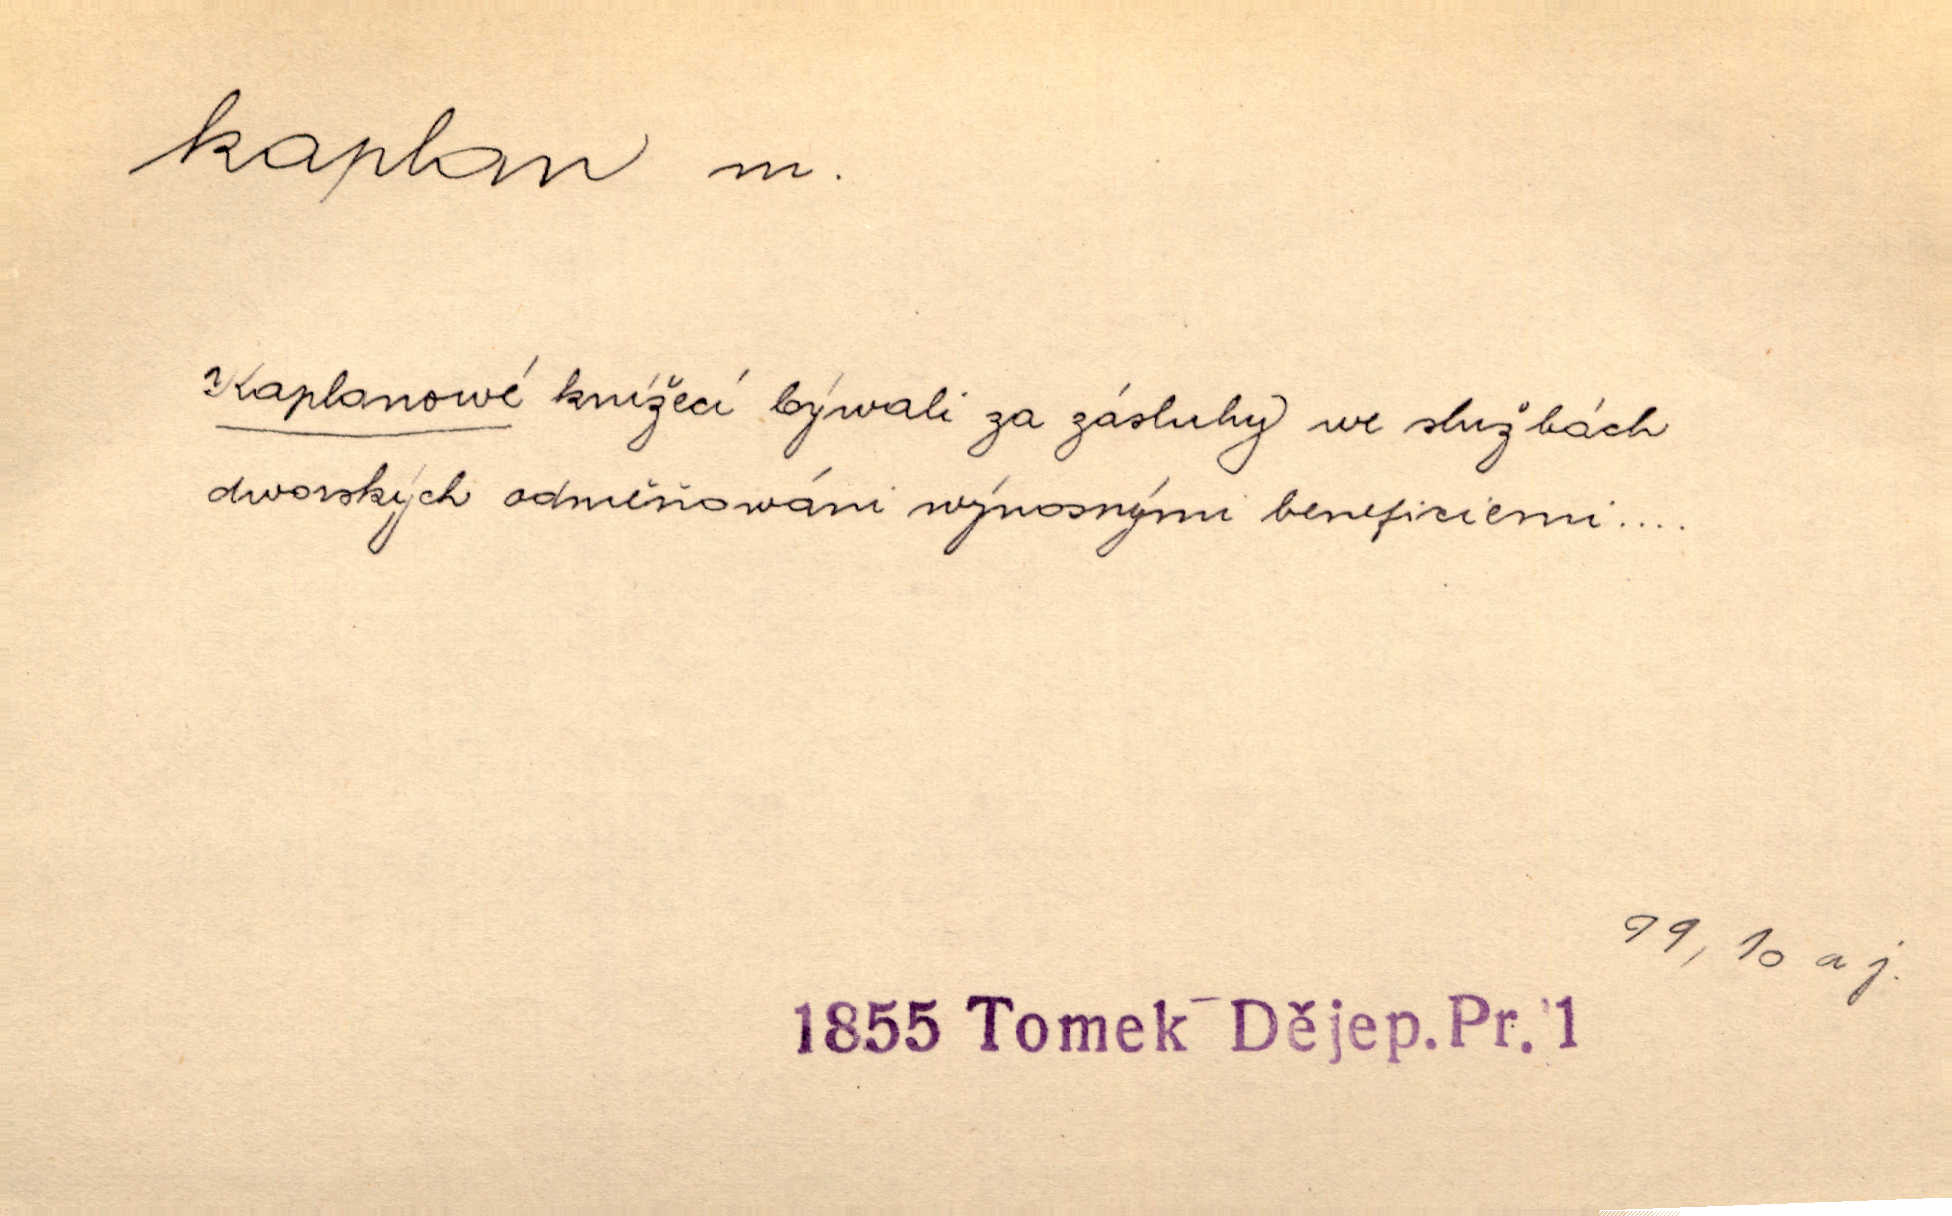 kaplan m.
Kaplanowé knížecí býwali za zásluhy we službách
dworských odměňowáni wýnosnými beneficiemi....
99, 10 a j.
1855 Tomek Dějep. Pr. 1